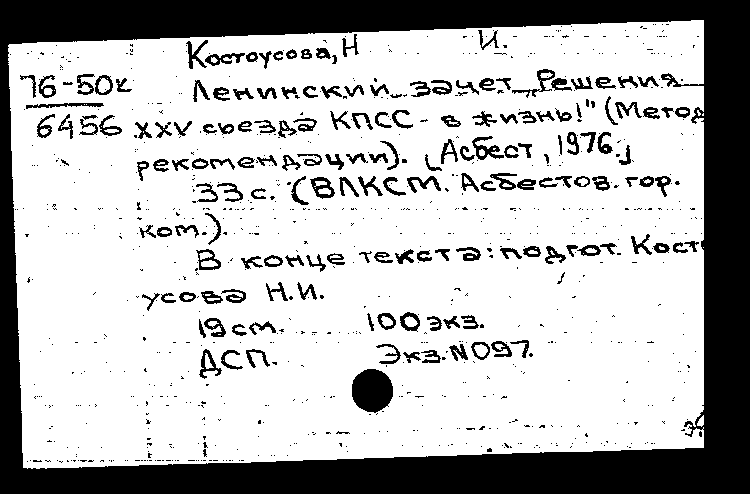 Костоусова, Н И.
76-50к Ленинский зачет „Решения
6456 XXV съезда КПСС - в жизнь!" (Метод
рекомендации). [Асбест, 1976.]
33 с. (ВЛКСМ. Асбестов. гор.
ком.).
В конце текста: подгот. Косто
усова Н.И.
19 см. 100 экз.
ДСП. Экз. N 097.